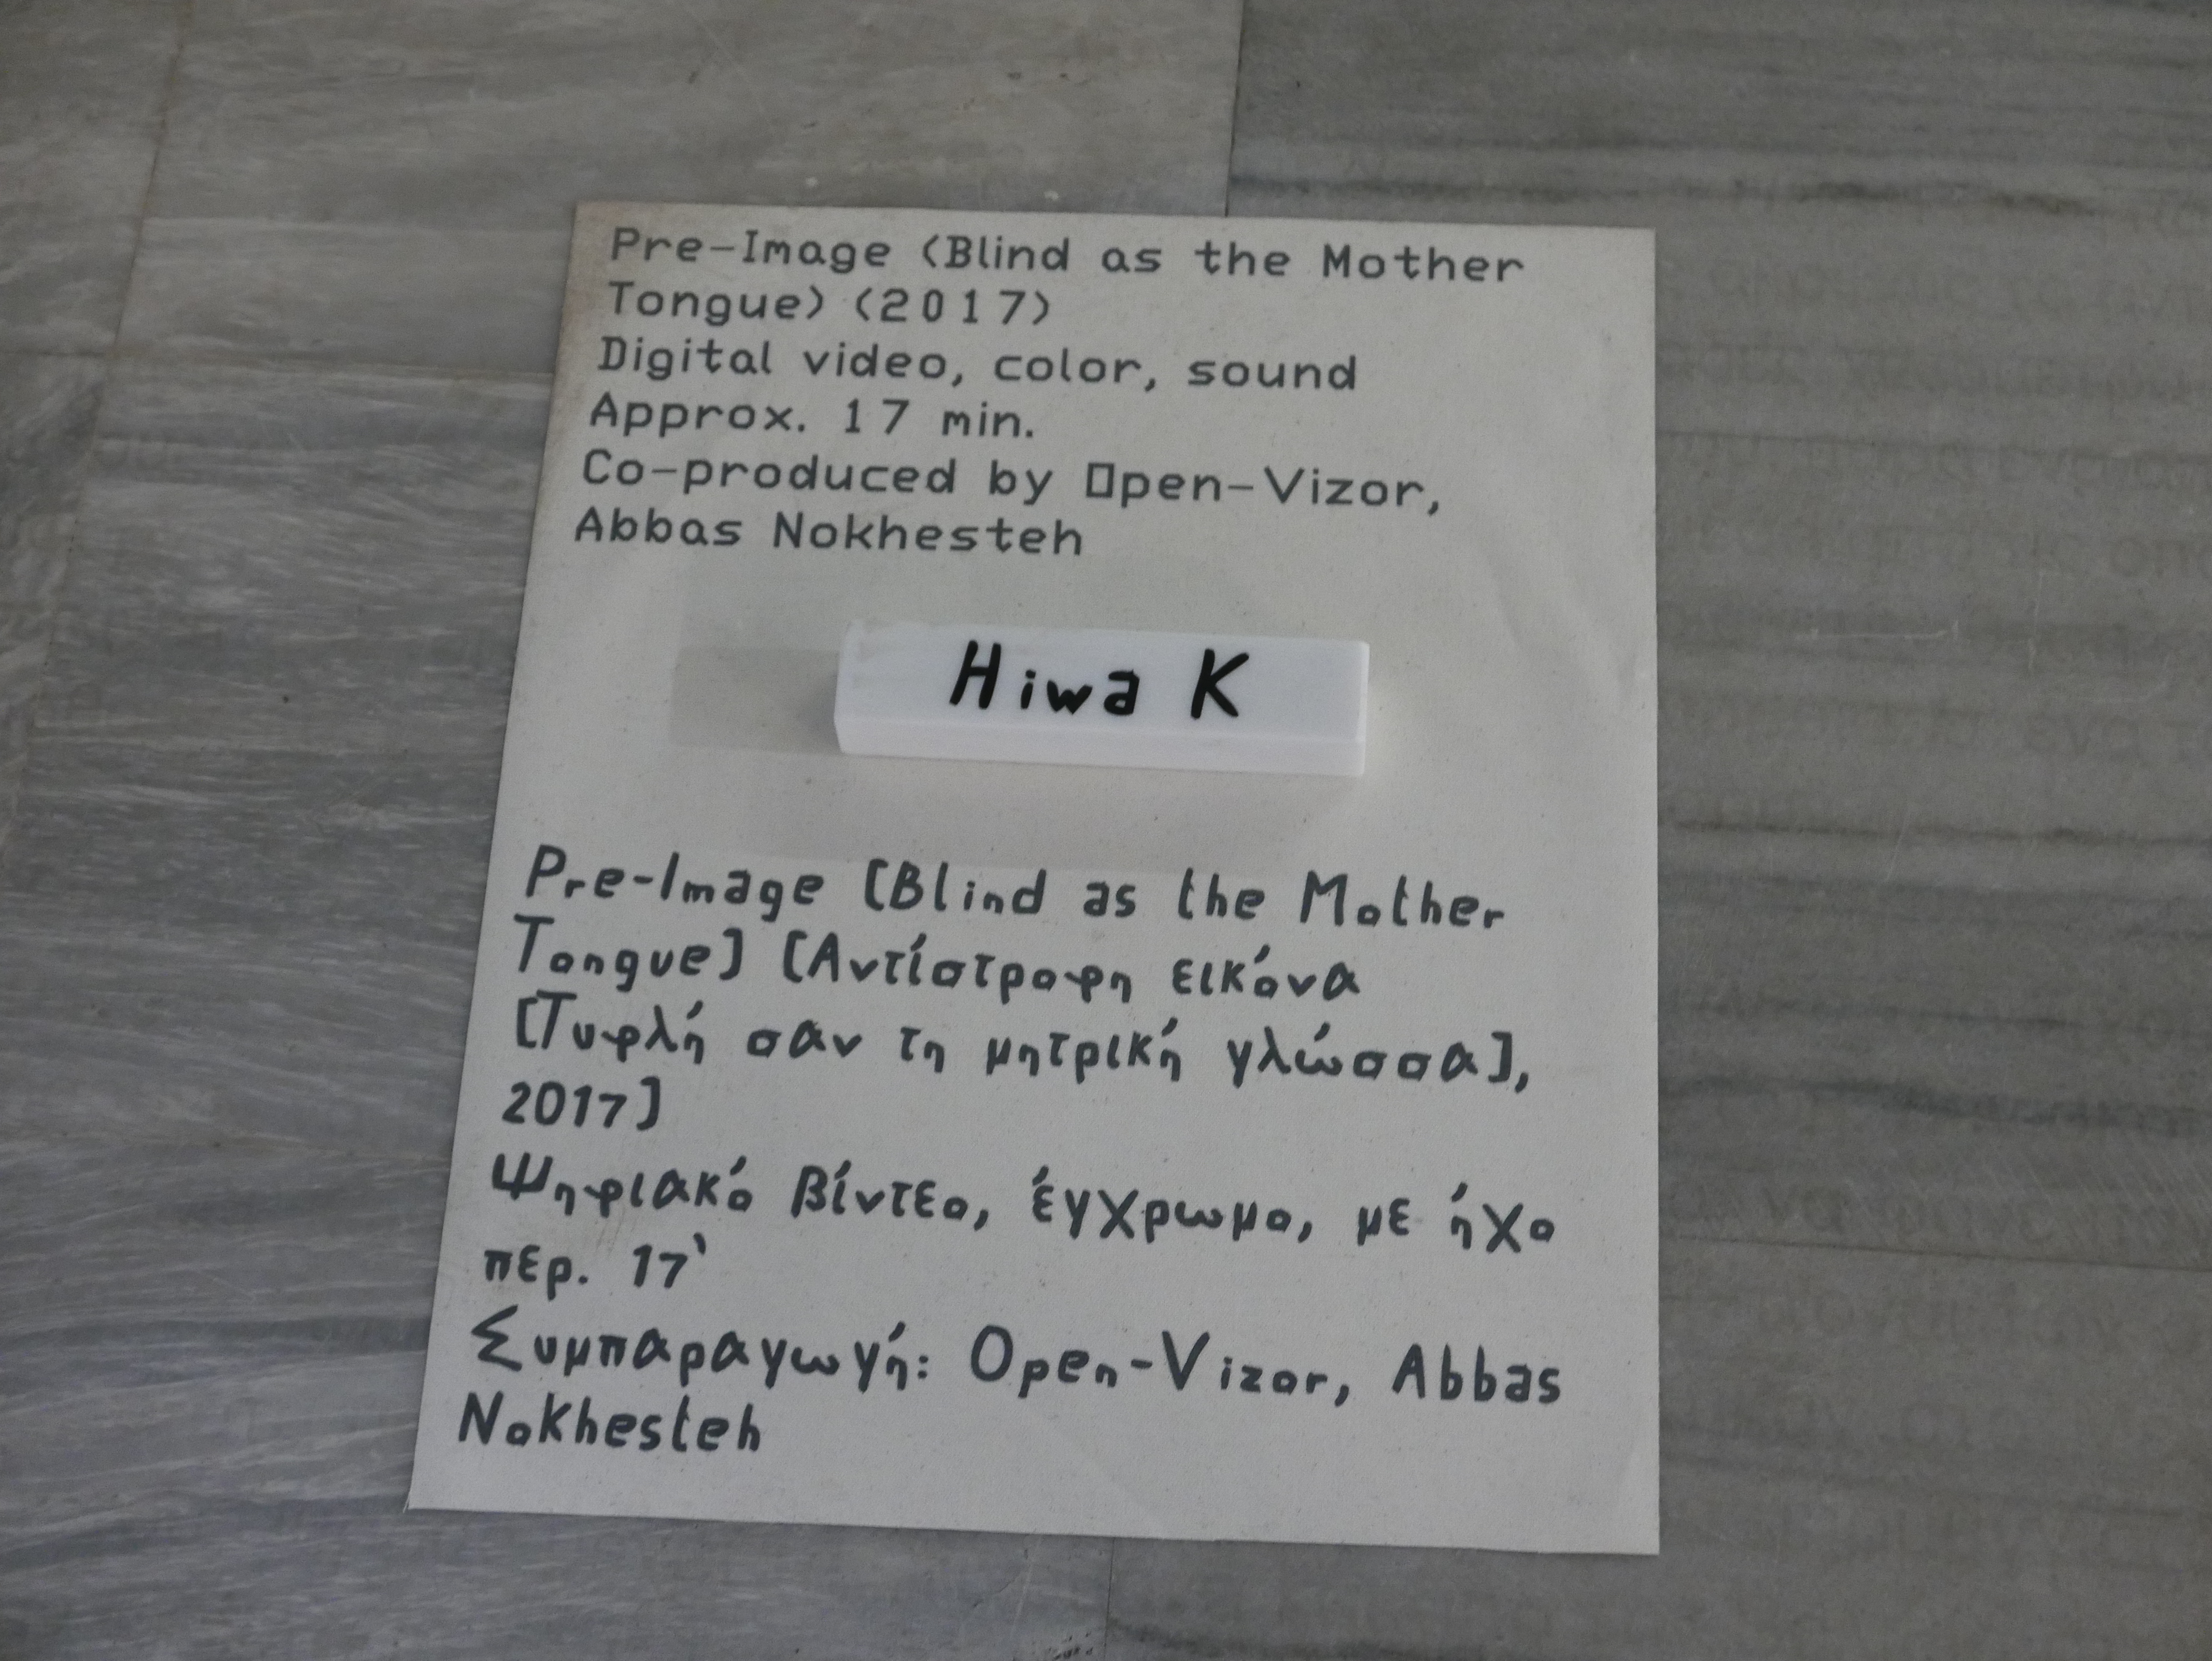 Pre-Image (Blind as the Mother
Tongue) (2017)
Digital video, color, sound
Approx. 17 min.
Co-produced by Open-Vizor,
Abbas Nokhesteh
Hiwa K
Pre-Image [Blind as the Mother
Tongue] [Αντίστροφη εικόνα
[Τυφλή σαν τη μητρική γλώσσα],
2017]
Ψηφιακό βίντεο, έγχρωμο, με ήχο
περ. 17'
Συμπαραγωγή: Open-Vizor, Abbas
Nokhesteh